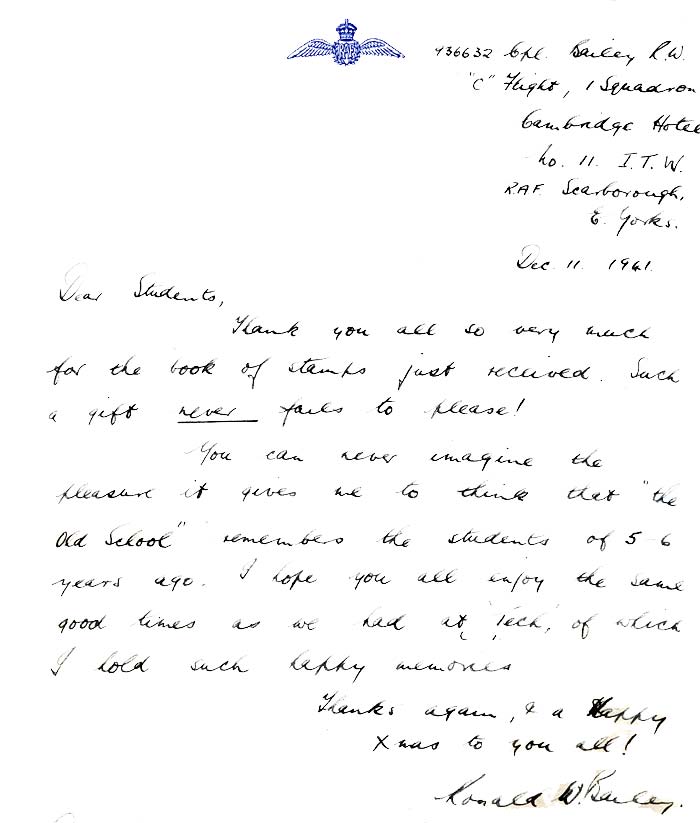 RAF
436632 Cpl. Bailey R.W.
"C" Flight, 1 Squadron
Cambridge Hotel
No. 11. I.T.W.
R.A.F. Scarborough,
E. Yorks.
Dec. 11. 1941.
Dear Students,
Thank you all so very much
for the book of stamps just received. Such
a gift never fails to please!
You can never imagine the
pleasure it gives me to think that "the
Old School" remembers the students of 5-6
years ago. I hope you all enjoy the same
good times as we had at 'Tech', of which
I hold such happy memories
Thanks again, & a Happy
Xmas to you all!
Ronald W. Bailey.